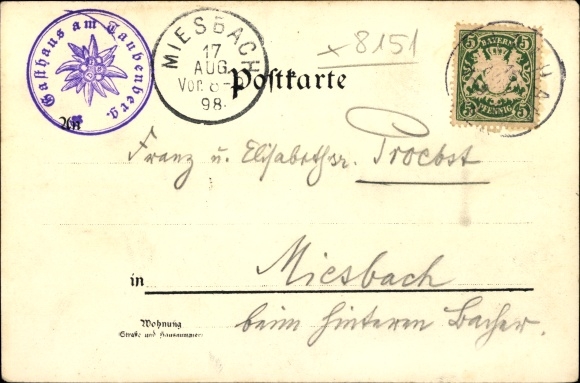 Gasthaus am Taubenberg.
MIESBACH
17
AUG
Vor. 8-
98.
x 8151
BAYERN
5 5
PFENNIG
5 5
Postkarte
An
Franz u. Elisabeth Probst
in Miesbach
Wohnung
(Straße und Hausnummer)
beim hinteren Bacher.